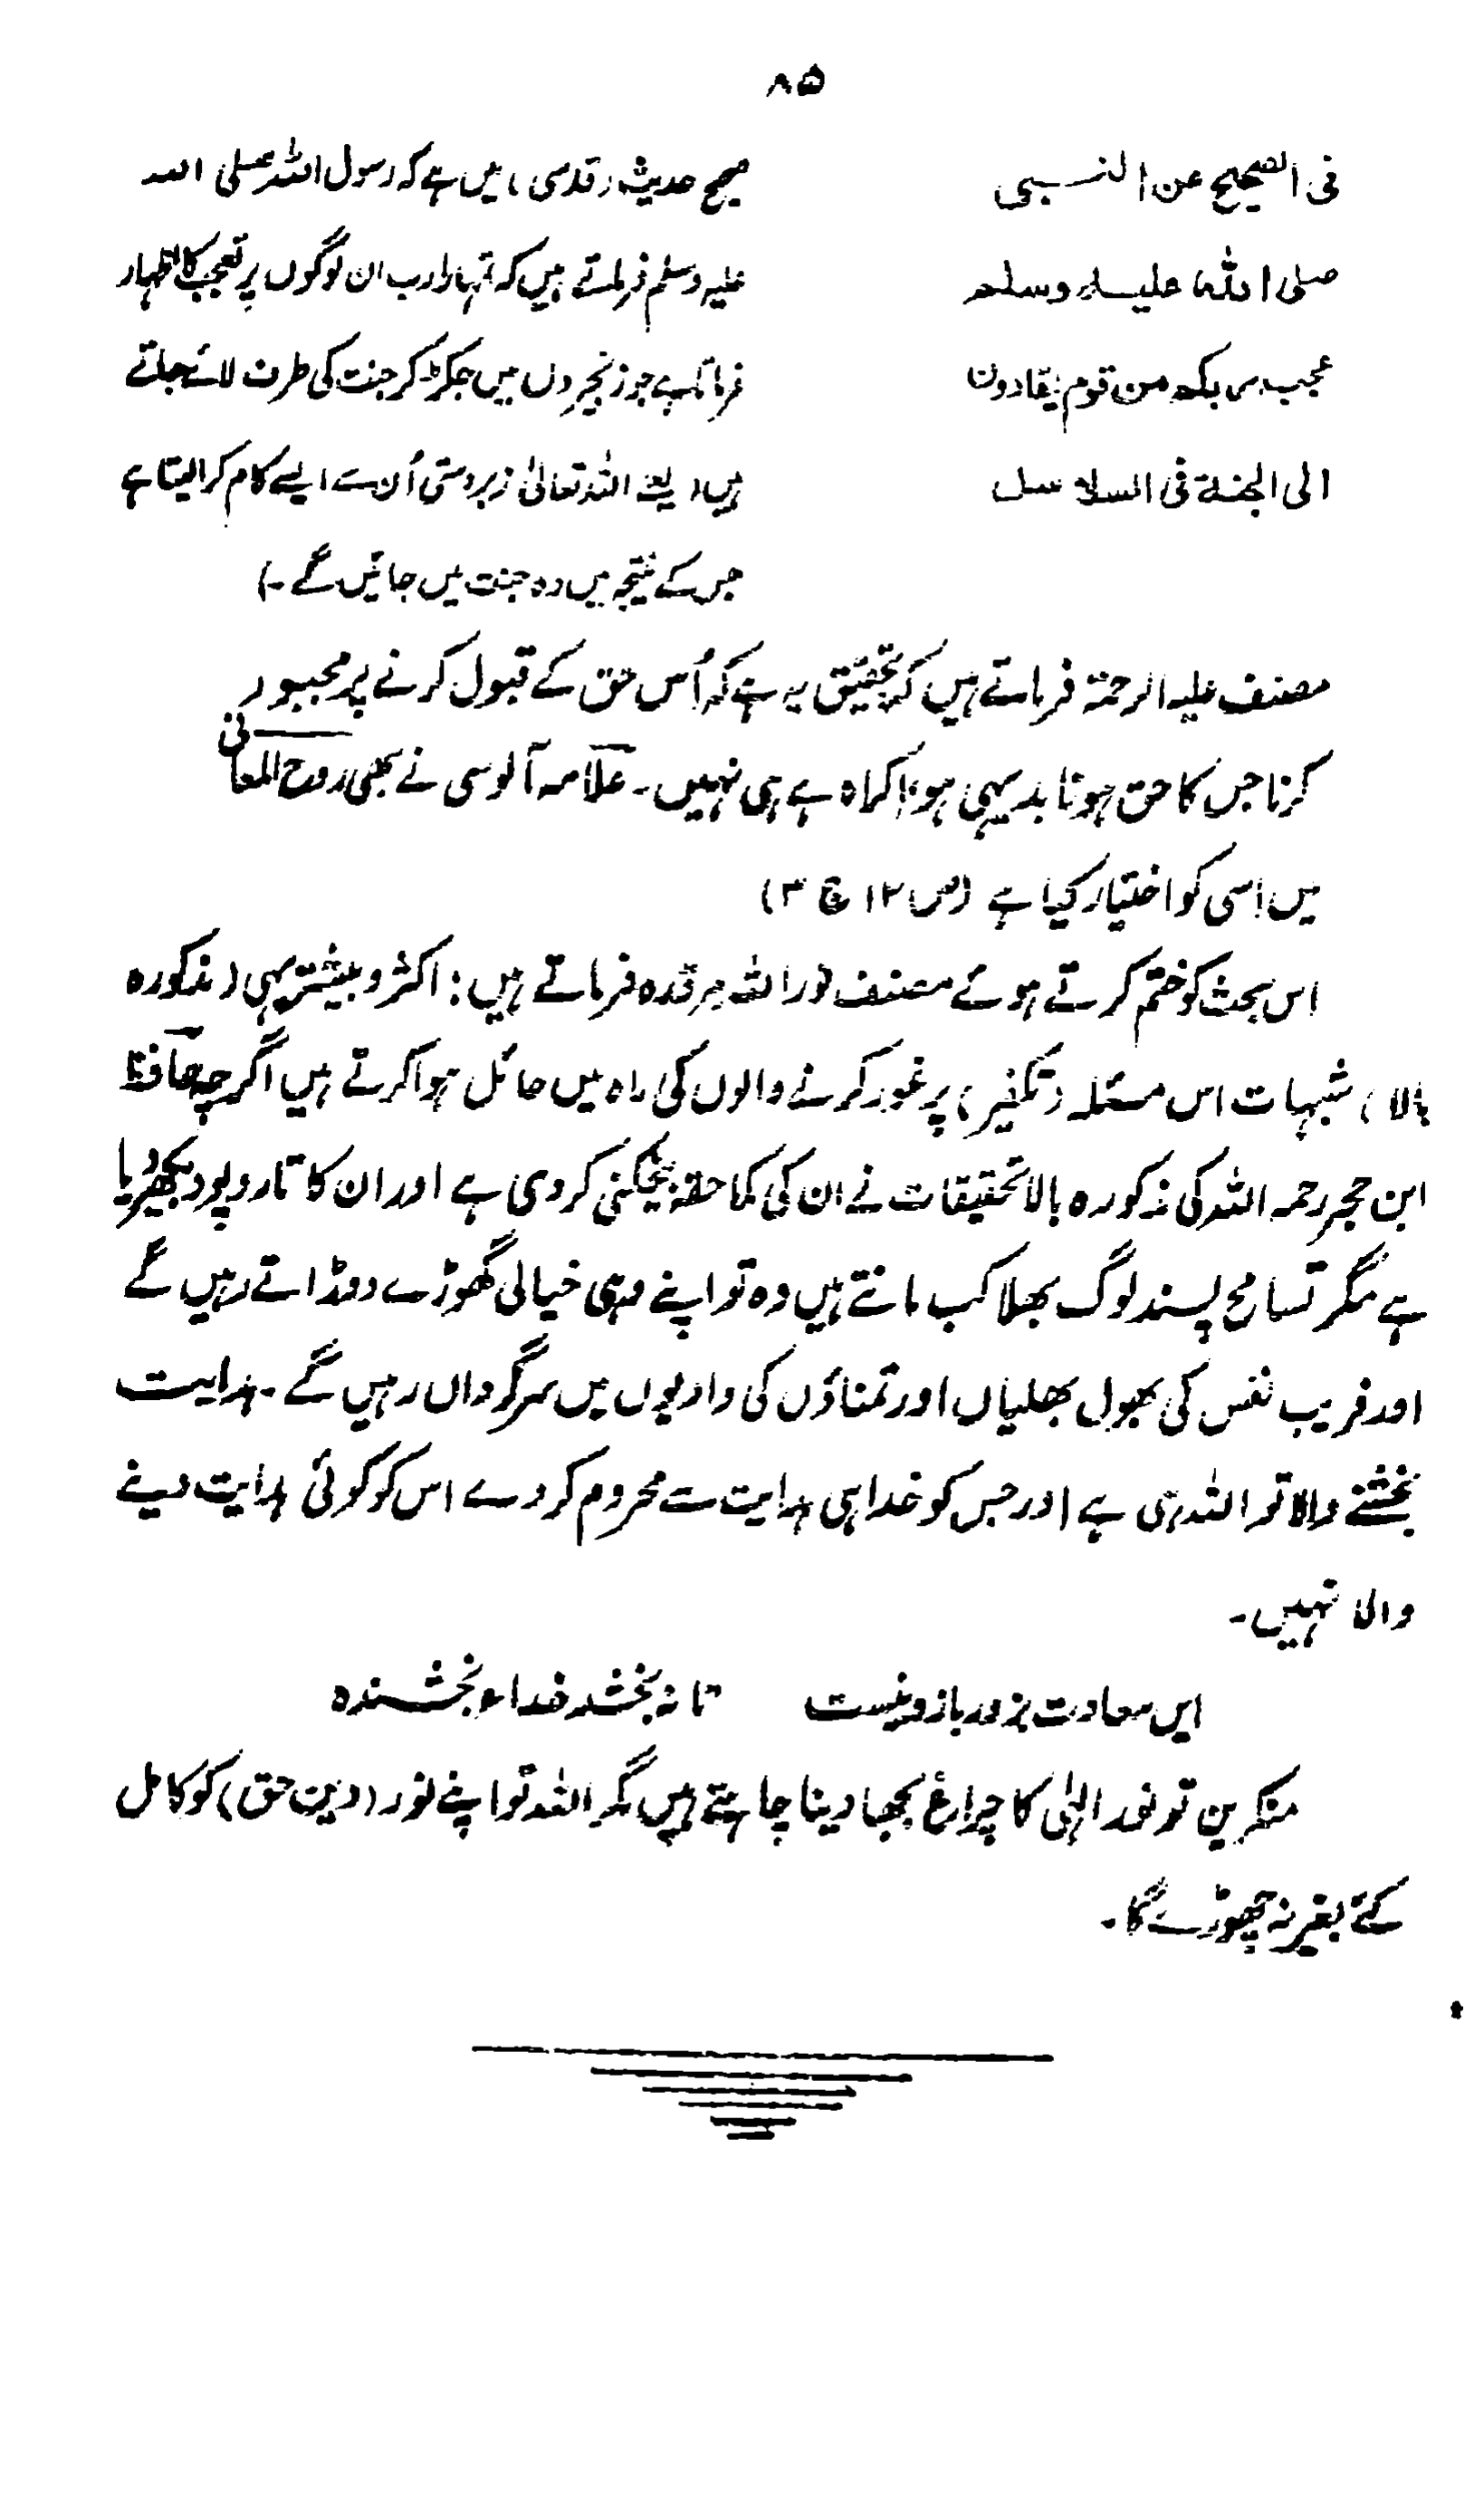 ۸۵
فی الصحیح عن النبی
صلی اللہ علیہ وسلم
عجب ربکم من قوم یقادون
الی الجنۃ فی السلاسل
صحیح حدیث (قدسی) میں ہے کہ رسول اللہ صلی اللہ
علیہ وسلم فرماتے ہیں کہ تمہارا رب ان لوگوں پر تعجب کا اظہار
فرماتا ہے جو زنجیروں میں جکڑ کر جنت کی طرف لائے جاتے
ہیں (یعنے اللہ تعالیٰ زبردستی اُن سے ایسے کام کرالیتا ہے
جس کے نتیجہ میں وہ جنت میں جائیں گے۔)
مصنف علیہ الرحمۃ فرماتے ہیں کہ تحقیق یہ ہے کہ اُس حق کے قبول کرنے پر مجبور
کرنا جس کا حق ہونا بدیہی ہو اکراہ ہے ہی نہیں۔ علامہ آلوسی نے بھی روح المعانی
میں اِسی کو اختیار کیا ہے (ص ۱۲ ج ۳)
اس بحث کو ختم کرتے ہوئے مصنف نور اللہ مرقدہ فرماتے ہیں: اکثر و بیشتر یہی (مذکورہ
بالا) شبہات اس مسئلہ (تکفیر) پر غور کرنے والوں کی راہ میں حائل ہوا کرتے ہیں اگرچہ حافظ
ابن حجر رحمہ اللہ کی مذکورہ بالا تحقیقات نے ان کی کما حقہٗ بیخکنی کر دی ہے اور ان کا تار و پود بکھیر دیا
ہے مگر تسامح پسند لوگ بھلا کب مانتے ہیں وہ تو اپنے وہی خیالی گھوڑے دوڑاتے رہیں گے
اور فریب نفس کی بھول بھلیاں اور تمناؤں کی وادیوں میں سرگرداں رہیں گے۔ ہدایت
بخشنے والا تو اللہ ہی ہے اور جس کو خدا ہی ہدایت سے محروم کر دے اس کو کوئی ہدایت دینے
والا نہیں۔
ایں سعادت بزور بازو نیست تا نہ بخشد خدائے بخشندہ
منکرین تو نور الہٰی کا چراغ بجھا دینا چاہتے ہیں مگر اللہ تو اپنے نور (دین حق) کو کامل
کئے بغیر نہ چھوڑے گا۔